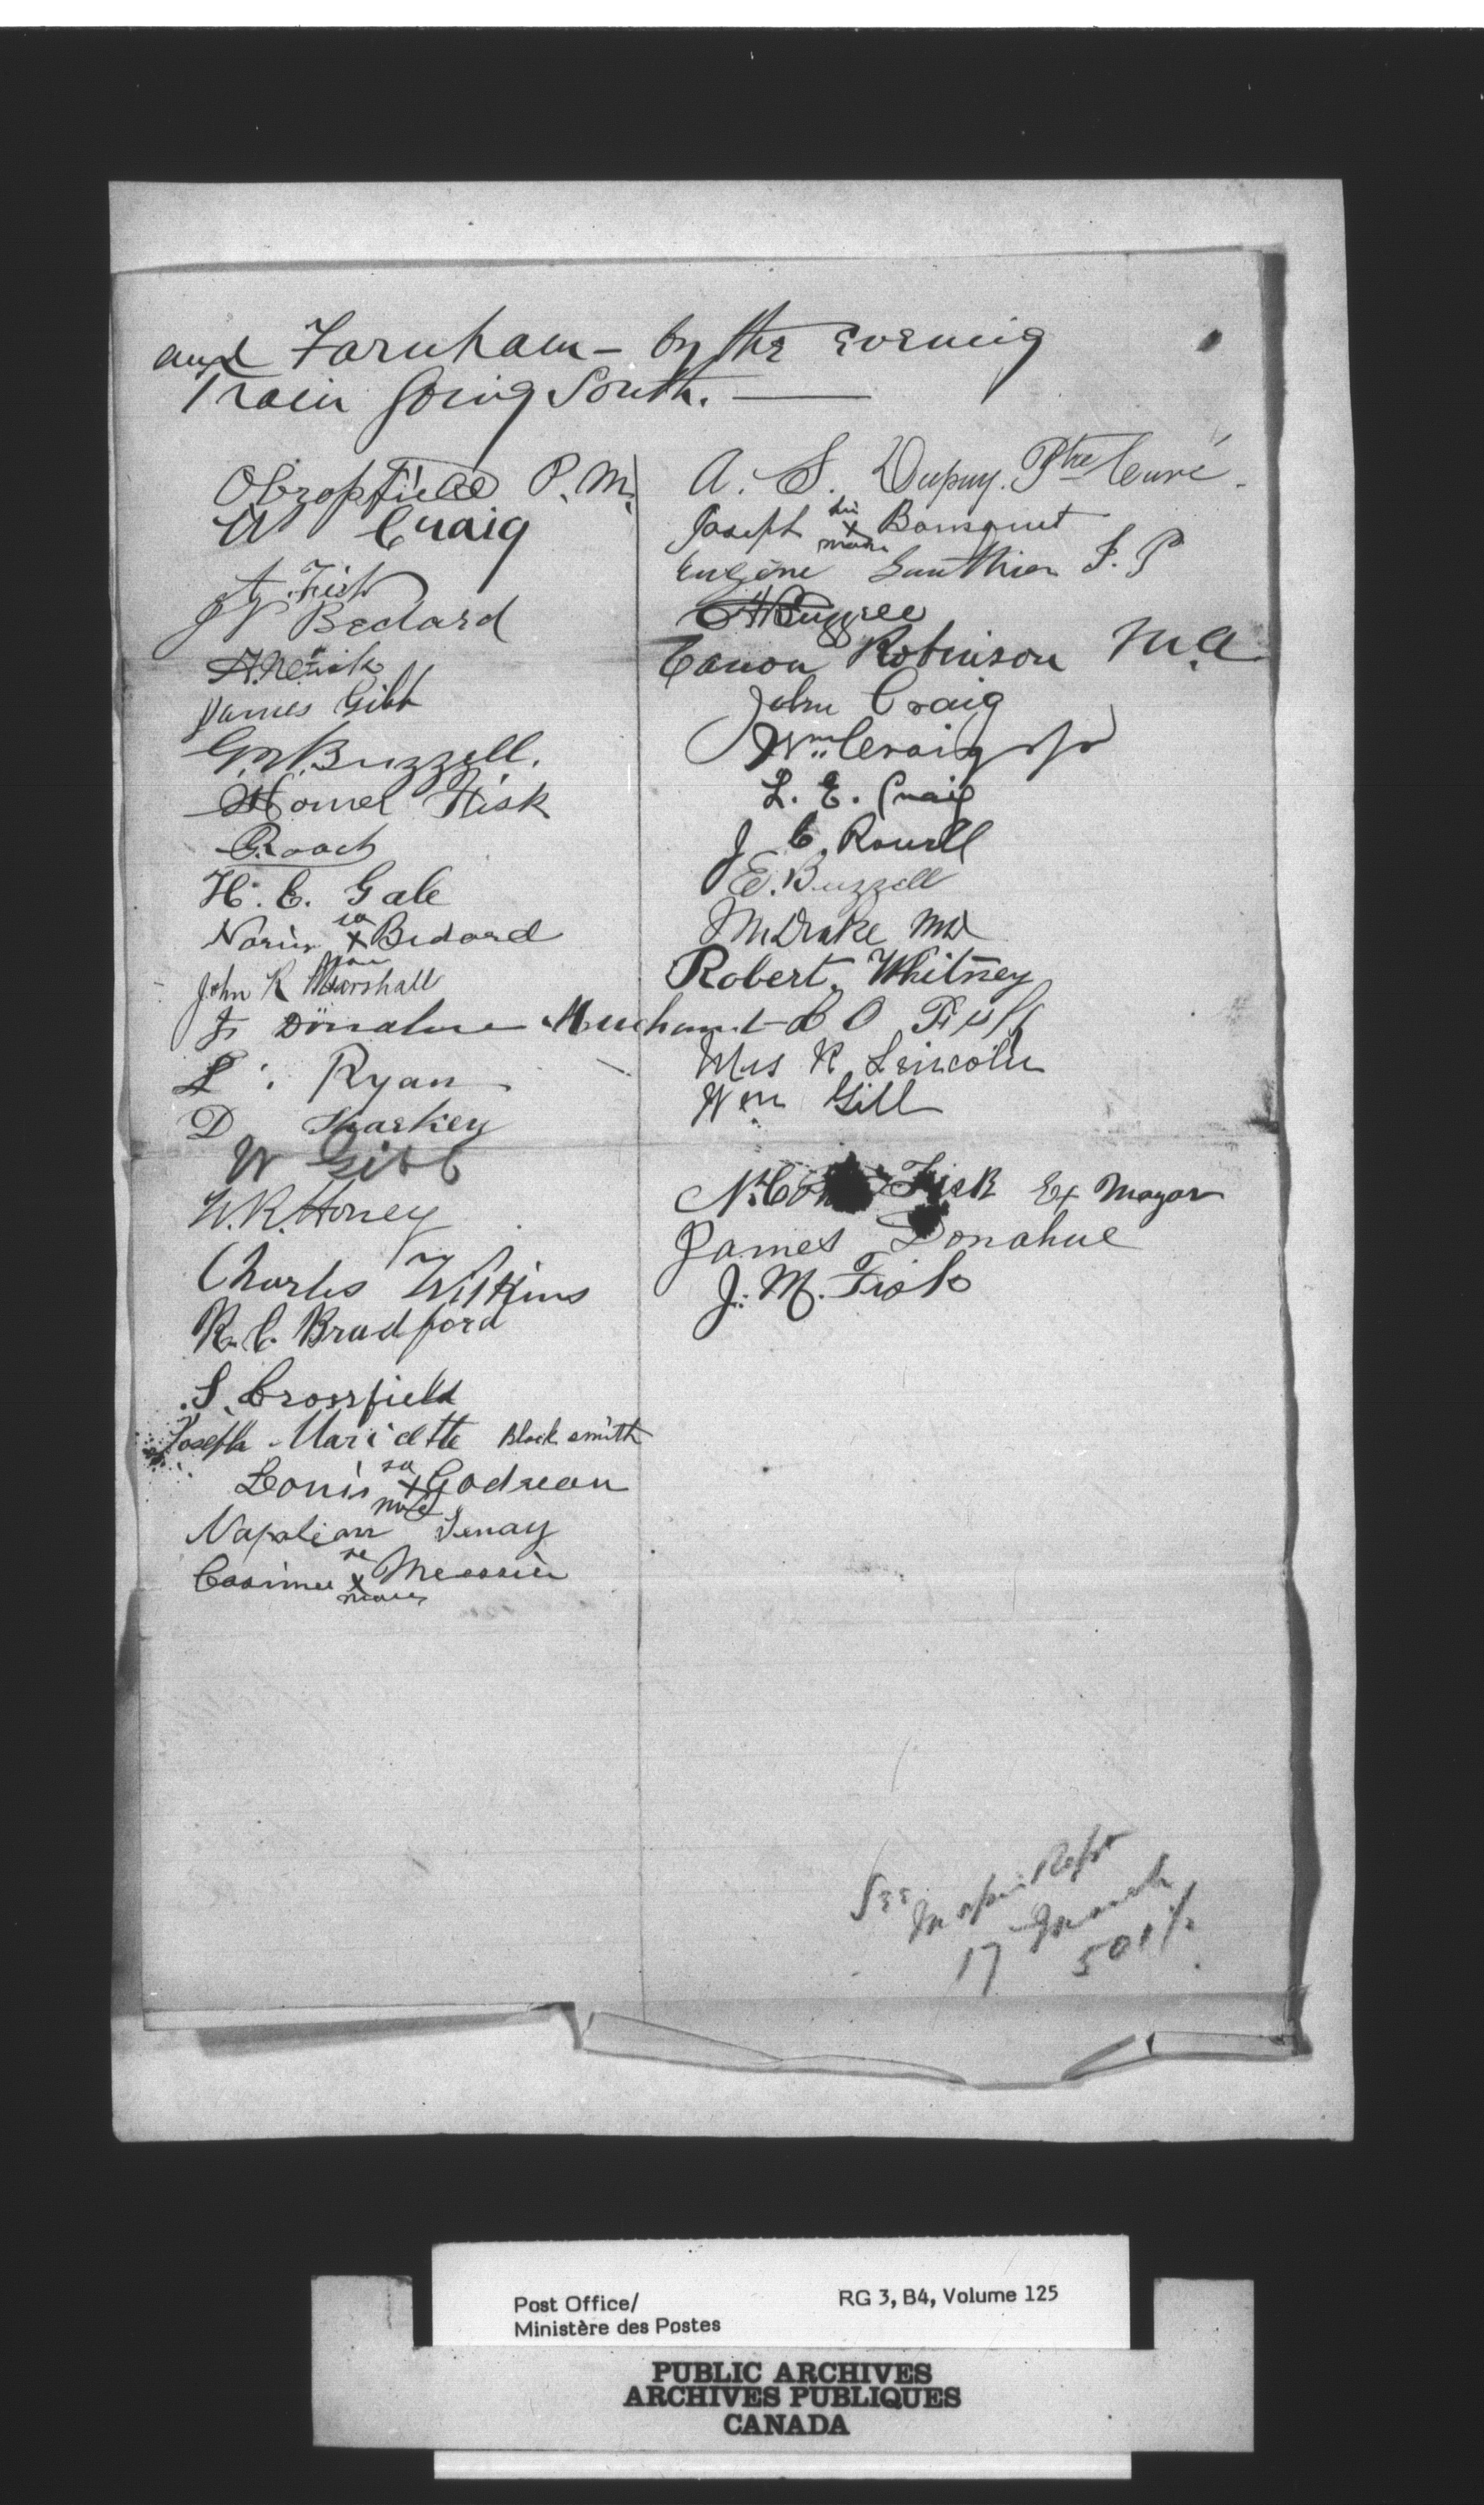 and Farnham - by the Evening
Train going South. —
O Crossfield P.M.
W Craig
A. Fisk
J N Bedard
James Gibb
G. N. Buzzell.
Homer Fisk
G. Roach
H. C. Gale
sa
X Bedard
John R Marshall
Donahue Merchant
L. Ryan
D Sharkey
W Gibb
W. R. Honey
Charles Wilkins
R. C. Bradford
S. Crossfield
Joseph Maridette Black smith
sa
Louis X Godreau
Napolian
se
Casimir X Messier
A. S. Dupuy. Ptre Curé.
Joseph X Bousquet
Eugène Gauthier J. P
Canon Robinson M.A
John Craig
Wm. Craig
L. E. Craig
J C. Rowell
E. Buzzell
M Drake MD
Robert. Whitney
Mrs R Lincoln
Wm Gill
Fisk Ex Mayor
James Donahue
J. M. Fisk
See
17 March
Post Office/
Ministère des Postes
RG 3, B4, Volume 125
PUBLIC ARCHIVES
ARCHIVES PUBLIQUES
CANADA